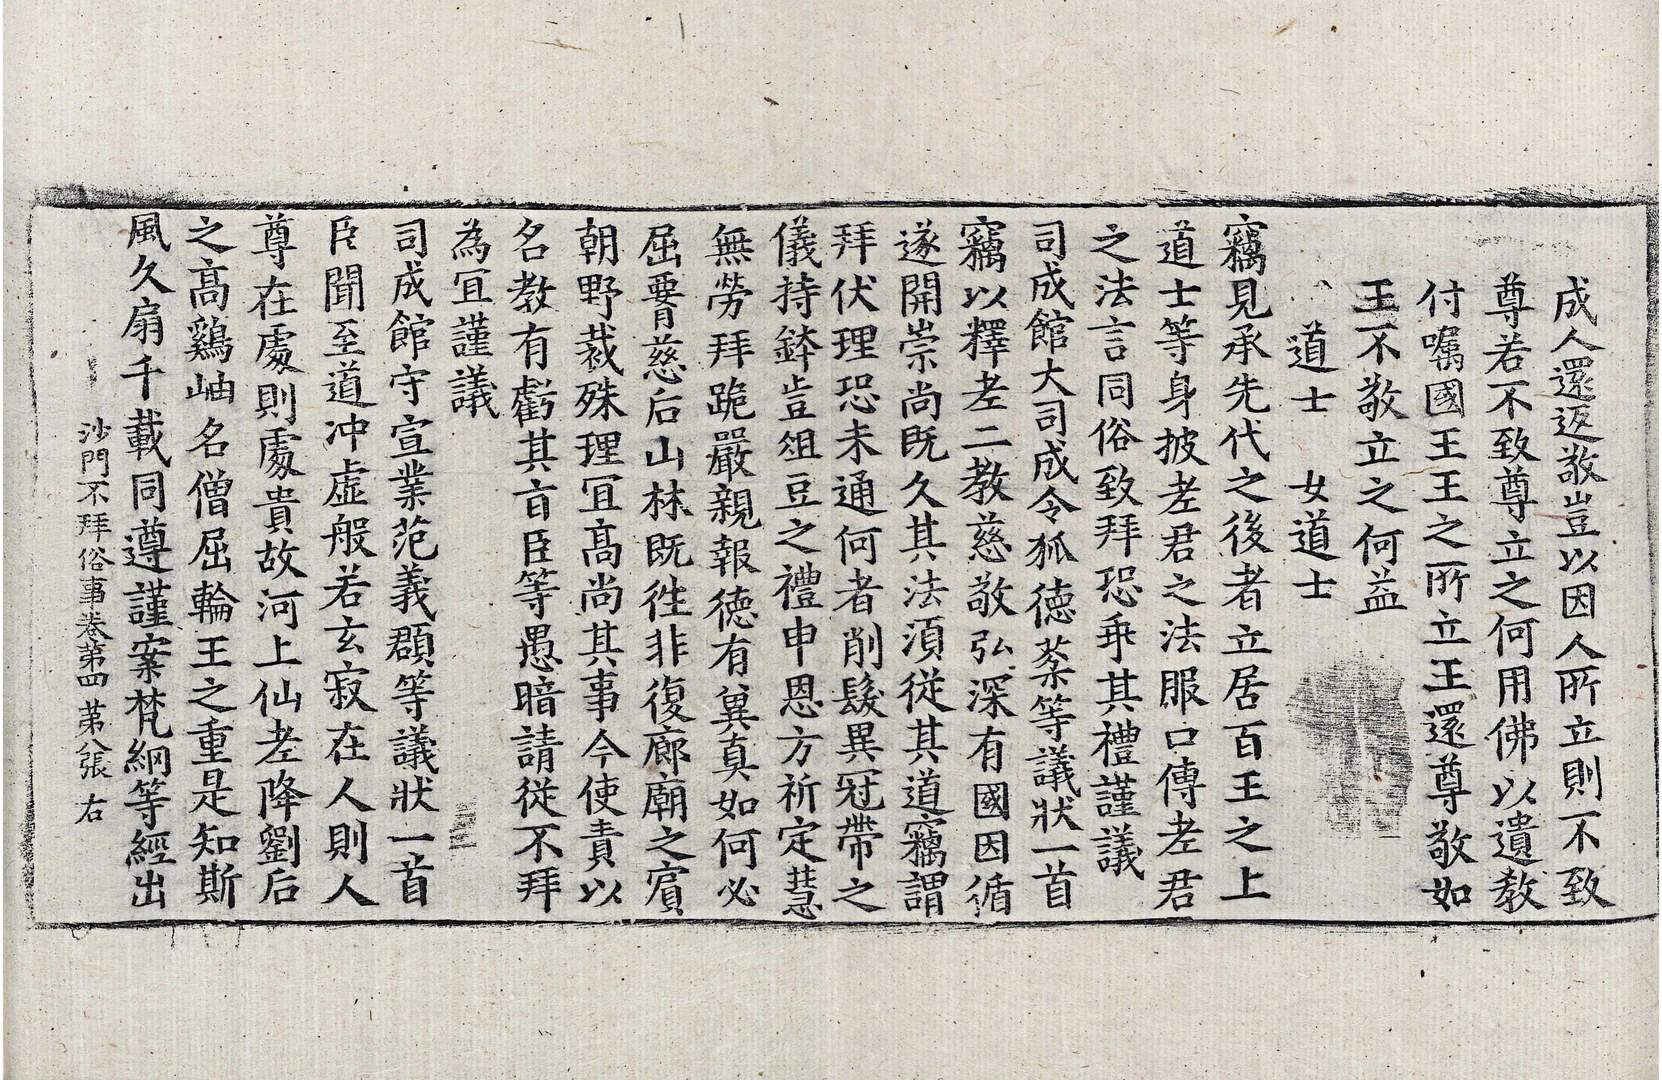 成人還返敬豈以因人所立則不致
尊若不致尊立之何用佛以遺教
付囑國王王之所立王還尊敬如
王不敬立之何益
道士　女道士
竊見承先代之後者立居百王之上
道士等身披老君之法服口傳老君
之法言同俗致拜恐乖其禮謹議
司成館大司成令狐德棻等議狀一首
竊以釋老二教慈敬弘深有國因循
遂開崇尚既久其法須從其道竊謂
拜伏理恐未通何者削髮異冠帶之
儀持鉢豈俎豆之禮申恩方祈定慧
無勞拜跪嚴親報德有冀真如何必
屈膋慈后山林既徃非復廊廟之賔
朝野裁殊理冝高尚其事今使責以
名教有虧其旨臣等愚暗請從不拜
為冝謹議
司成館守宣業范義頵等議狀一首
臣聞至道沖虛般若玄寂在人則人
尊在處則處貴故河上仙老降劉后
之高鷄岫名僧屈輪王之重是知斯
風久扇千載同遵謹案梵網等經出
沙門不拜俗事卷第四　第八張　右